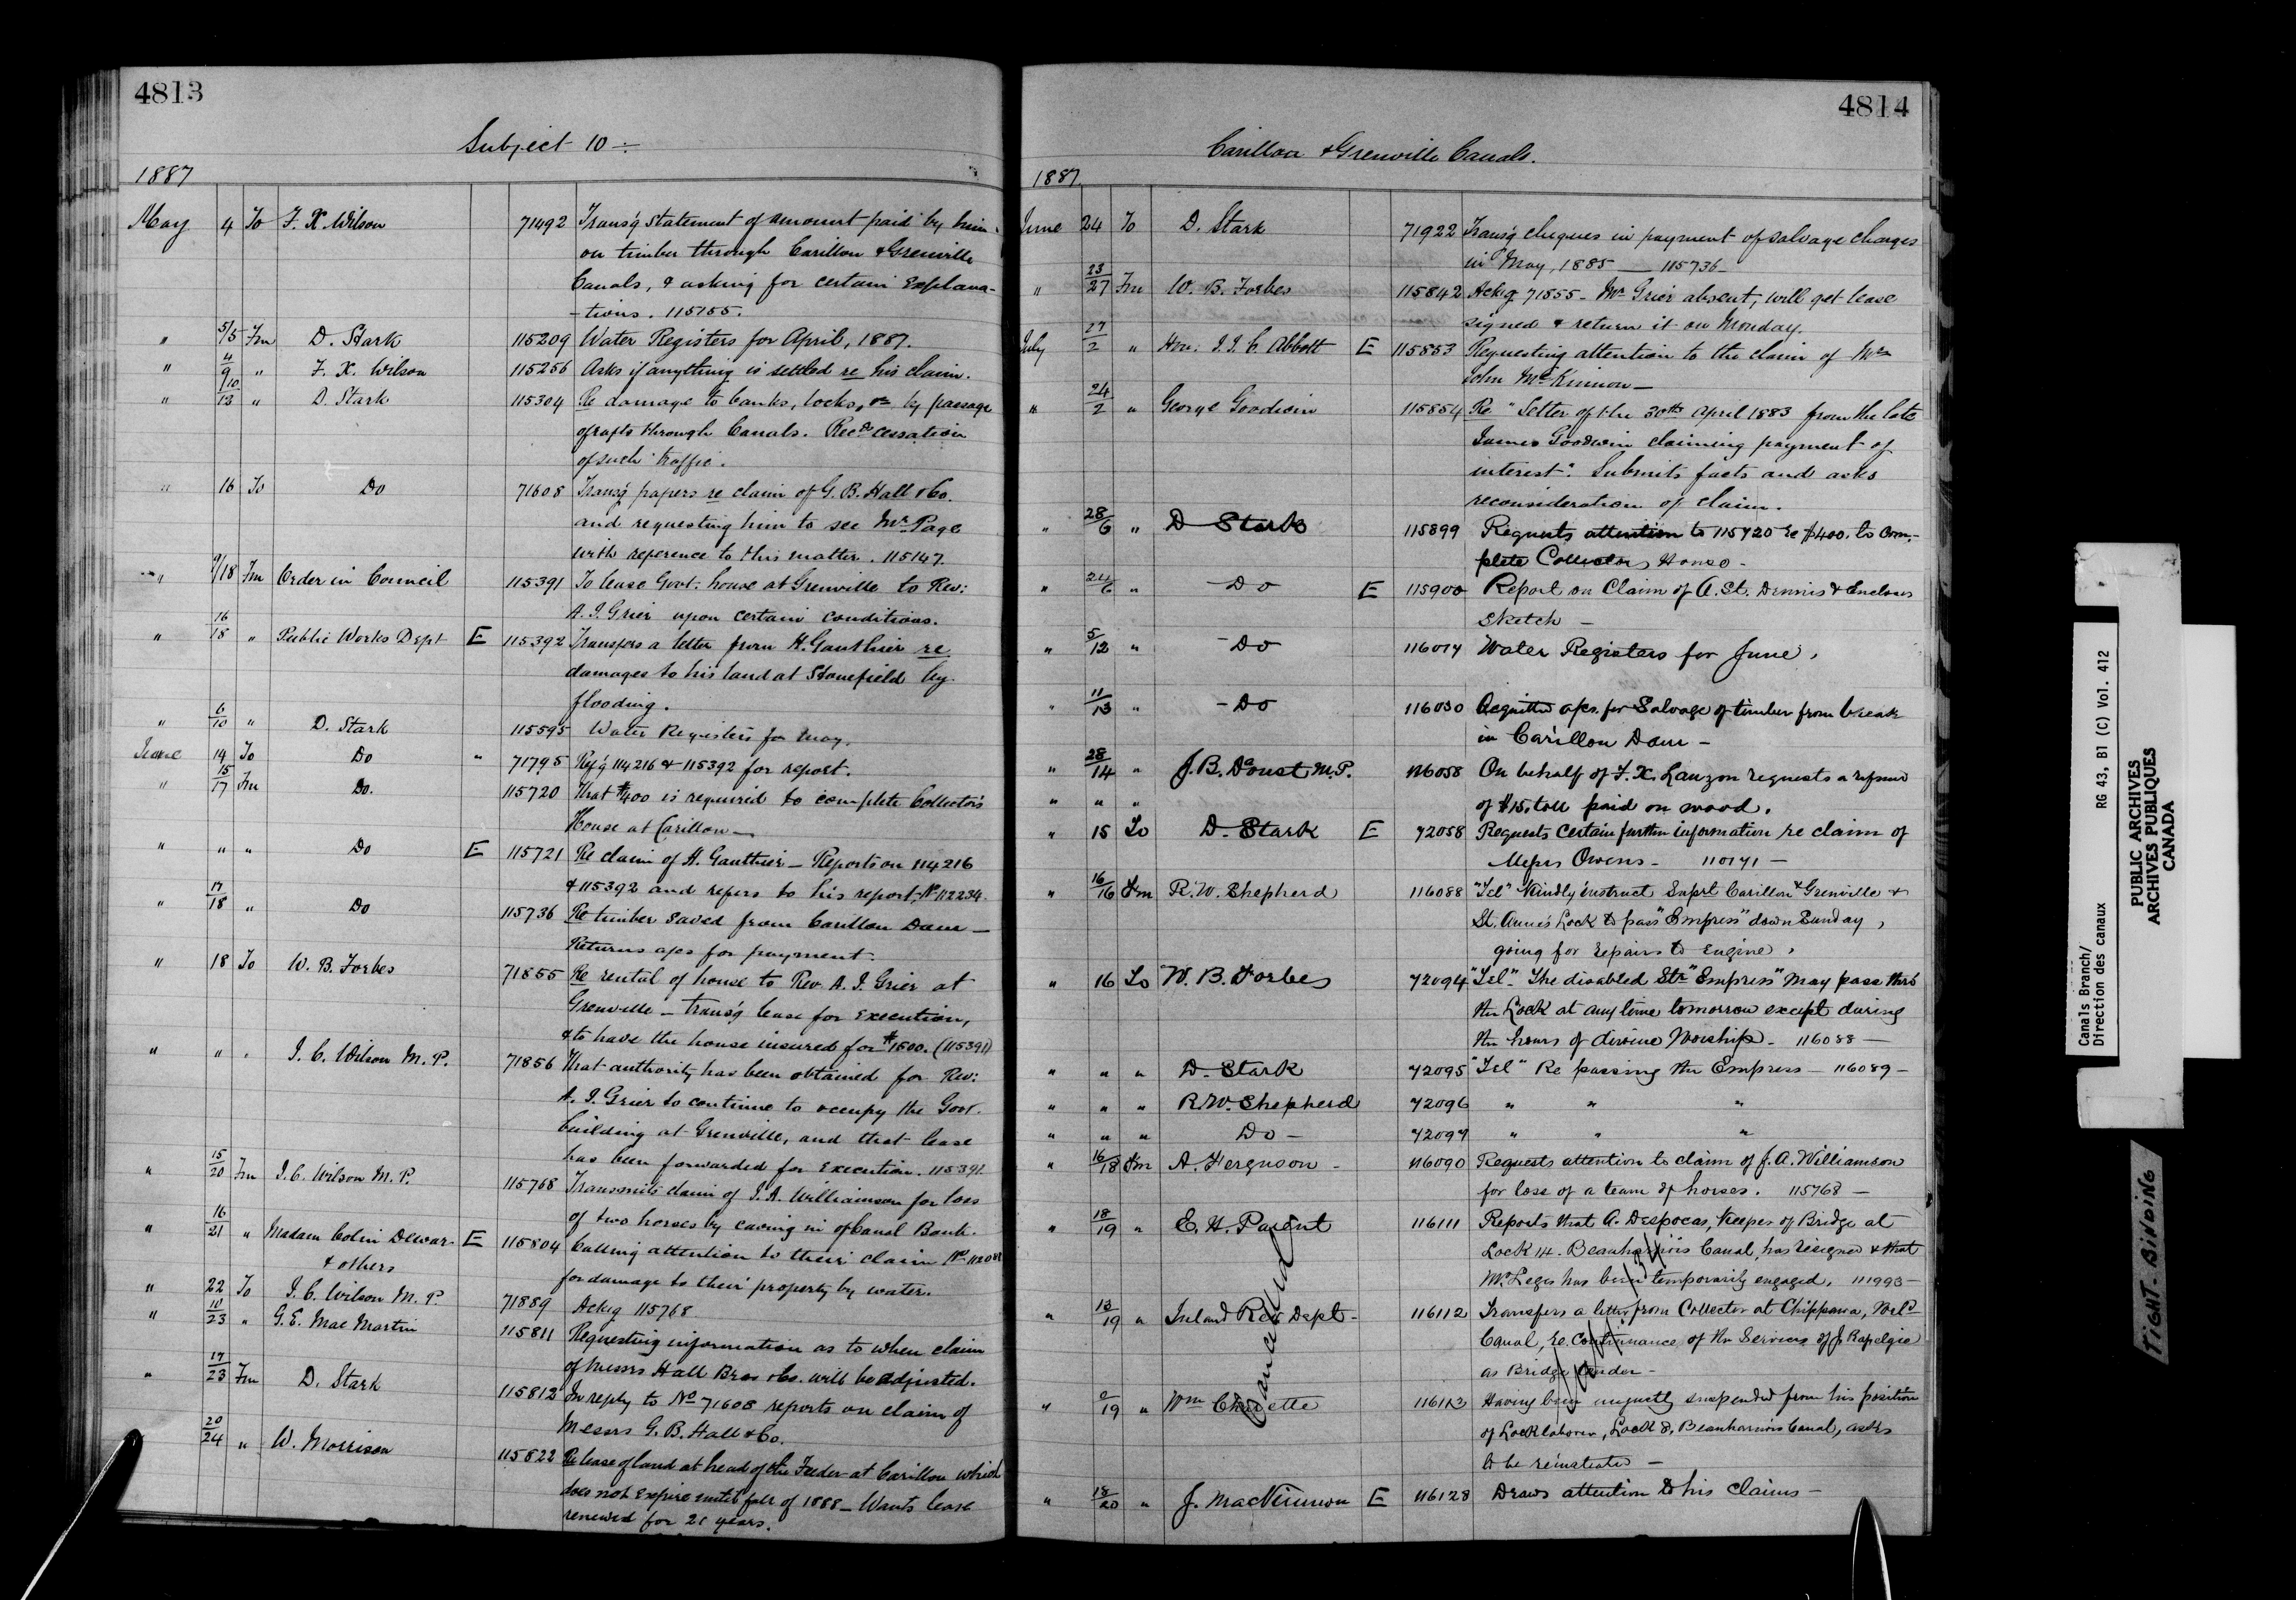 4813
Subject 10 ÷
1887
May 4 To F. X. Wilson 71492 Transg. statement of amount paid by him
on timber through Carillon & Grenville
Canals, & asking for certain Explana-
-tions. 115155.
" 5/5 Fm D. Stark 115209 Water Registers for April, 1887.
" 4/9 " F. X. Wilson 115256 Asks if anything is settled re his claim.
" 10/12 " D. Stark 115304 Re damage to banks, locks, &c by passage
of rafts through Canals. Recds cessation
of such traffic.
" 16 To Do 71608 Transg papers re claim of G. B. Hall & Co.
and requesting him to see Mr. Page
with reference to this matter. 115147.
" 9/18 Fm Order in Council 115391 To lease Govt. house at Grenville to Rev:
A. J. Grier upon certain conditions.
" 16/18 " Public Works Dept E 115392 Transfers a letter from H. Gauthier re
damages to his land at Stonefield by
flooding.
" 6/10 " D. Stark 115595 Water Registers for May.
June 14 To Do " 71795 Refg 114216 & 115392 for report.
" 15/17 Fm Do. 115720 That $400 is required to complete Collector's
House at Carillon —
" " " Do E 115721 Re claim of H. Gauthier — Reports on 114216
& 115392 and refers to his report, No 112234.
" 17/18 " Do 115736 Re timber saved from Carillon Dam —
Returns a/cs for payment.
" 18 To W. B. Forbes 71855 Re rental of house to Rev. A. J. Grier at
Grenville — Transg lease for execution,
& to have the house insured for $1500. (115391)
" " " J. C. Wilson M. P. 71856 That authority has been obtained for Rev:
A. J. Grier to continue to occupy the Govt.
building at Grenville, and that lease
has been forwarded for execution. 115391
" 15/20 Fm J. C. Wilson M. P. 115768 Transmits claim of J. A. Williamson for loss
of two horses by caving in of Canal Bank.
" 16/21 " Madam Colin Dewar E 115804 Calling attention to their claim No
& others for damage to their property by water.
" 22 To J. C. Wilson M. P. 71889 Ackg 115768.
" 10/23 " G. E. Mac Martin 115811 Requesting information as to when claim
of Messrs Hall Bros & Co. will be adjusted.
" 17/23 Fm D. Stark 115812 In reply to No 71608 reports on claim of
Messrs G. B. Hall & Co.
20/24 " W. Morrison 115822 Re lease of land at head of the Feeder at Carillon which
does not expire until fall of 1888 — Wants lease
renewed for 21 years.
4814
Carillon & Grenville Canals.
1887.
June 24 To D. Stark 71922 Transg cheques in payment of salvage charges
in May, 1885 — 115736 —
" 23/27 Fm W. B. Forbes 115842 Ackg 71855 — Mr Grier absent, will get lease
signed & return it on Monday.
July 27/2 " Hon. J. J. C. Abbott E 115853 Requesting attention to the claim of Mrs
John McKinnon —
" 24/2 " George Goodwin 115854 Re "Letter of the 30th April 1883 from the late
James Goodwin claiming payment of
interest." Submits facts and asks
reconsideration of claim.
" 28/6 " D Stark 115899 Requests attention to 115720 re $400. to com-
plete Collectors House —
" 24/6 " — Do E 115900 Report on Claim of A. St. Dennis & Encloses
Sketch —
" 5/12 " — Do 116017 Water Registers for June.
" 11/13 " — Do 116030 a/cs. for Salvage of timber from break
in Carillon Dam —
" 28/14 " J. B. Daoust M. P. 116058 On behalf of F. X. Lauzon requests a refund
" " " of $15. toll paid on wood.
" 15 To D. Stark E 72058 Requests certain further information re claim of
Messrs Owens — 110171 —
" 16/16 Fm R. W. Shepherd 116088 "Tel" Kindly instruct Suprt Carillon & Grenville &
St. Anne's Lock to pass "Empress" down Sunday,
going for repairs to Engine,
" 16 To W. B. Forbes 72094 "Tel" The disabled Str "Empress" may pass thro
the Lock at any time tomorrow except during
the hours of divine Worship — 116088 —
" " " D. Stark 72095 "Tel" Re passing the Empress — 116089 —
" " " R. W. Shepherd 72096 " " "
" " " Do — 72097 " " "
" 16/18 Fm A. Ferguson — 116090 Requests attention to claim of J. A. Williamson
for loss of a team of horses. 115768 —
" 18/19 " E. H. Parent 116111 Reports that A. Despocas, Keeper of Bridge at
Lock 14 — Beauharnois Canal, has resigned & that
Mr Leger has been temporarily engaged, 111993 —
" 13/19 " Inland Rev Dept — 116112 Transfers a letter from Collector at Chippawa, Welld
Canal, re continuance of the Services of J. Rapelgie
as Bridge tender —
" 9/19 " Wm Charette 116113 Having been unjustly suspended from his position
of Lock laborer, Lock 8, Beauharnois Canal, asks
to be reinstated —
Cancelled
" 18/20 " J. MacKinnon E 116128 Draws attention to his claims —
Canals Branch/ RG 43, B1 (C) Vol. 412
Direction des canaux
PUBLIC ARCHIVES
ARCHIVES PUBLIQUES
CANADA
TIGHT BINDING